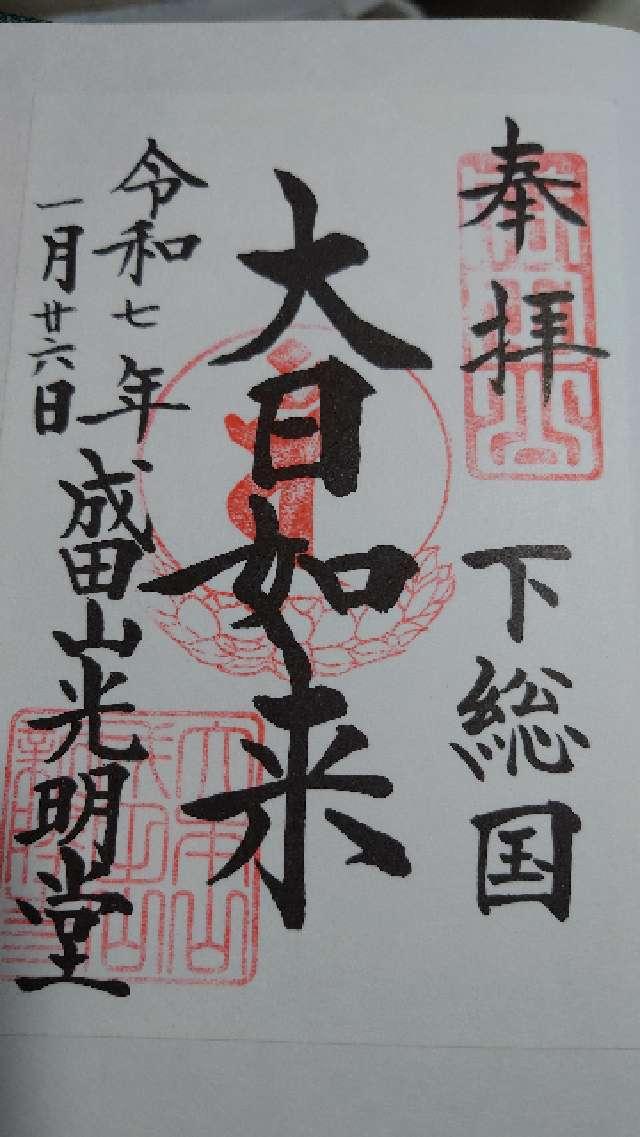 奉拝
下総国
大日如来
令和七年
一月廿六日
成田山光明堂